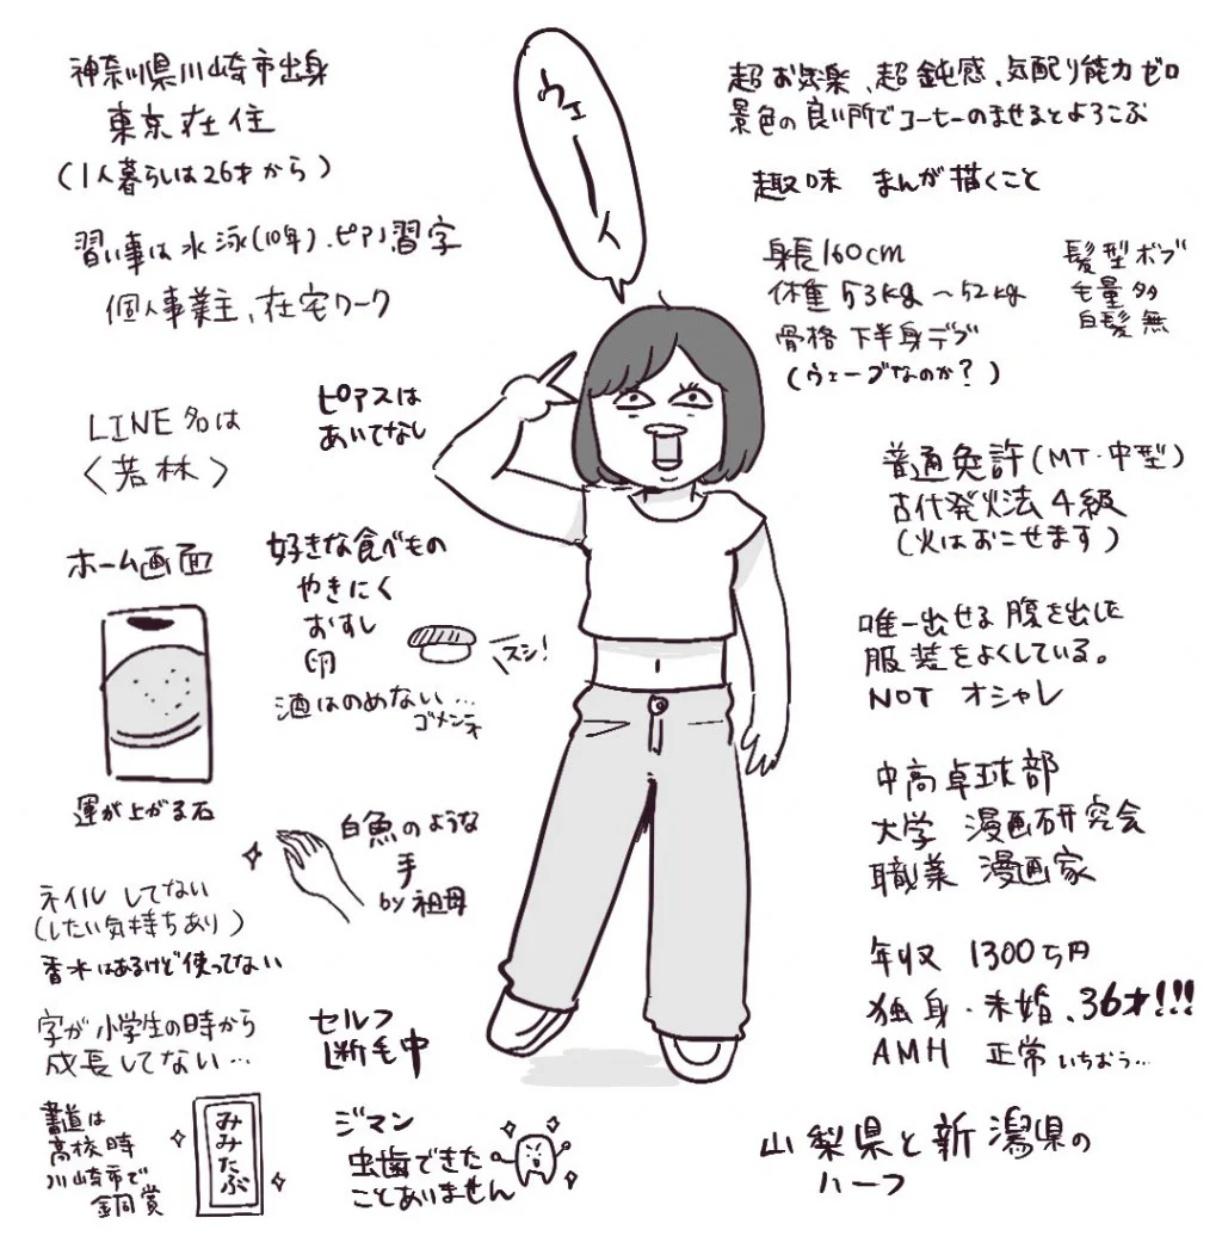 神奈川県川崎市出身
東京在住
(1人暮らしは26才から)
習い事は水泳(10年)、ピアノ、習字
個人事業主、在宅ワーク
LINE名は
〈若林〉
ピアスは
あいてなし
ホーム画面
運が上がる石
好きな食べもの
やきにく
おすし
卵
スシ!
酒はのめない…
ゴメンネ
白魚のような
手
by 祖母
ネイルしてない
(したい気持ちあり)
香水はあるけど使ってない
字が小学生の時から
成長してない…
セルフ
断毛中
書道は
高校時
川崎市で
銅賞
みみたぶ
ジマン
虫歯できた
ことありません
ウェーイ
超お気楽、超鈍感、気配り能力ゼロ
景色の良い所でコーヒーのませるとよろこぶ
趣味 まんが描くこと
身長160cm
体重53kg〜52kg
骨格 下半身デブ
(ウェーブなのか?)
髪型ボブ
毛量多
白髪無
普通免許(MT・中型)
古代発火法4級
(火はおこせます)
唯一出せる腹を出した
服装をよくしている。
NOT オシャレ
中高卓球部
大学 漫画研究会
職業 漫画家
年収 1300万円
独身・未婚、36才!!!
AMH 正常いちおう…
山梨県と新潟県の
ハーフ